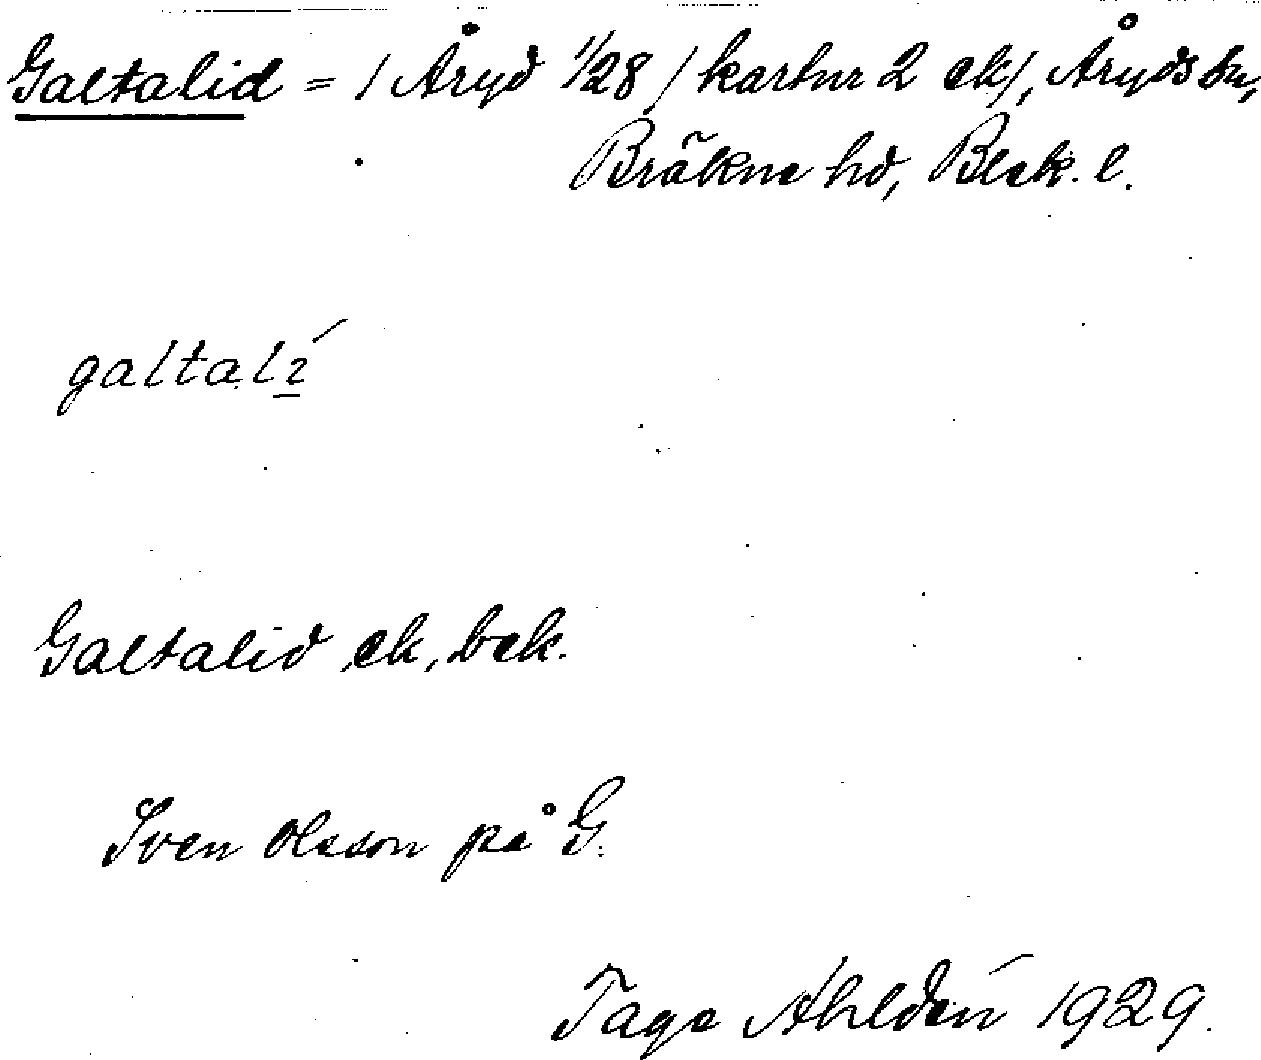 Galtalid = / Åryd 1/28 / kartnr 2 ek/, Åryds sn,
Bräkne hd, Blek. l.
galtalí
Galtalid ek, bek.
Sven Olsson på G.
Tage Ahldén 1929.